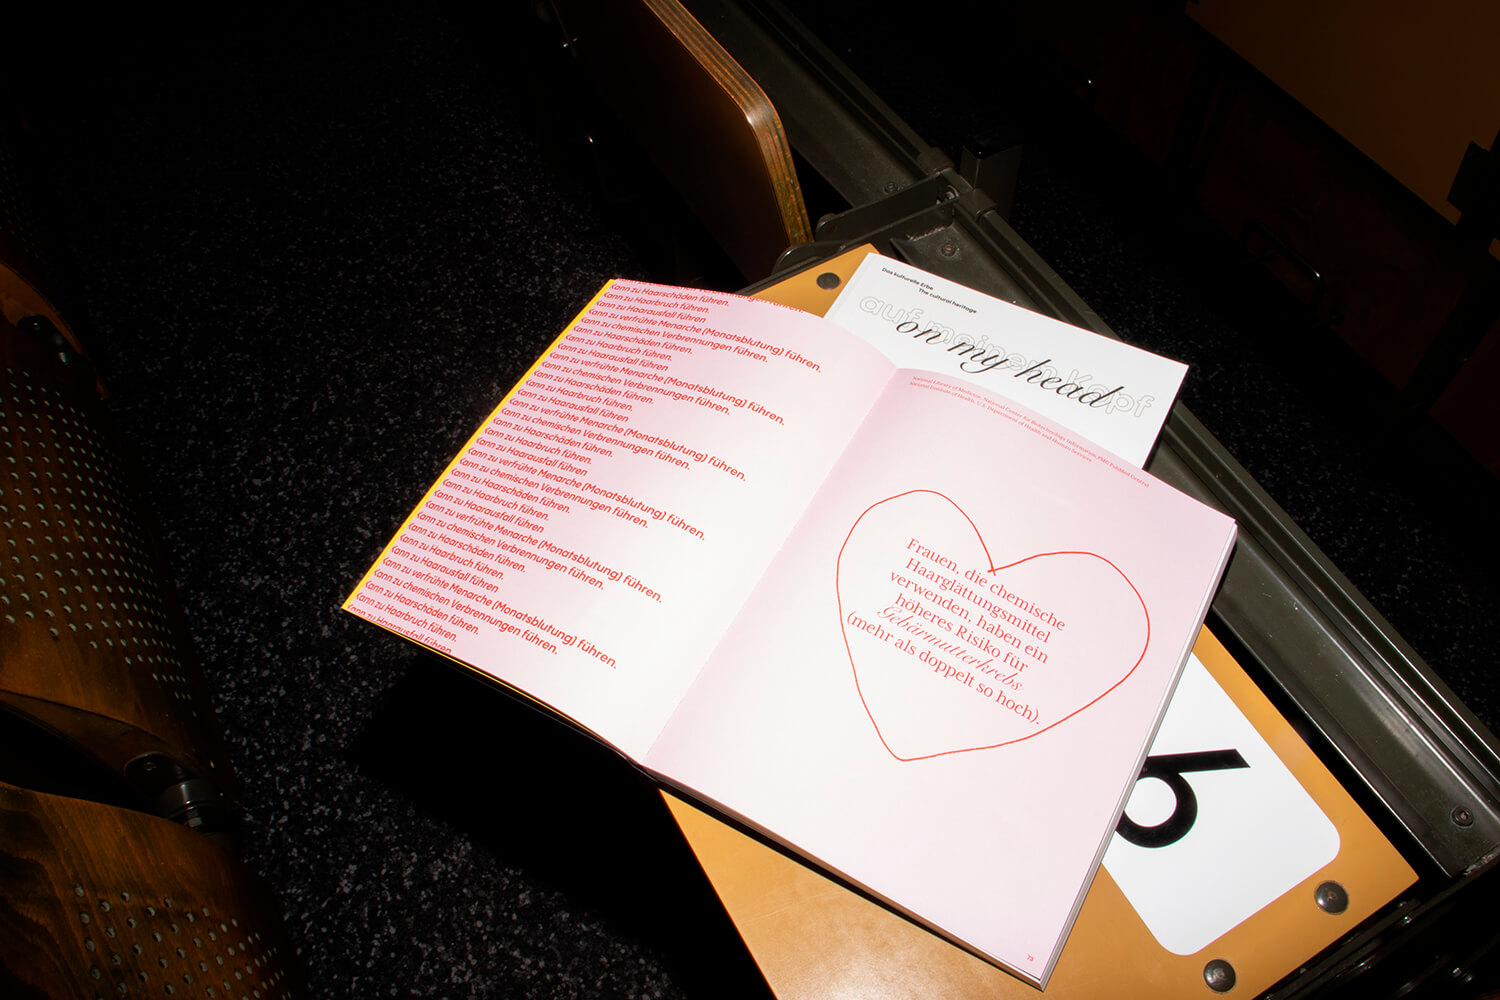 Kann zu Haarschäden führen.
Kann zu Haarbruch führen.
Kann zu Haarausfall führen
Kann zu verfrühte Menarche (Monatsblutung) führen.
Kann zu chemischen Verbrennungen führen.
Kann zu Haarschäden führen.
Kann zu Haarbruch führen.
Kann zu Haarausfall führen
Kann zu verfrühte Menarche (Monatsblutung) führen.
Kann zu chemischen Verbrennungen führen.
Kann zu Haarschäden führen.
Kann zu Haarbruch führen.
Kann zu Haarausfall führen
Kann zu verfrühte Menarche (Monatsblutung) führen.
Kann zu chemischen Verbrennungen führen.
Kann zu Haarschäden führen.
Kann zu Haarbruch führen.
Kann zu Haarausfall führen
Kann zu verfrühte Menarche (Monatsblutung) führen.
Kann zu chemischen Verbrennungen führen.
Kann zu Haarschäden führen.
Kann zu Haarbruch führen.
Kann zu Haarausfall führen
Kann zu verfrühte Menarche (Monatsblutung) führen.
Kann zu chemischen Verbrennungen führen.
Kann zu Haarschäden führen.
Kann zu Haarbruch führen.
Kann zu Haarausfall führen
Kann zu verfrühte Menarche (Monatsblutung) führen.
Kann zu chemischen Verbrennungen führen.
Kann zu Haarschäden führen.
Kann zu Haarbruch führen.
Kann zu Haarausfall führen
Das kulturelle Erbe
The cultural heritage
auf meinem Kopf
on my head
National Library of Medicine, National Center for Biotechnology Information, PMC PubMed Central
National Institute of Health, U.S. Department of Health and Human Services
Frauen, die chemische
Haarglättungsmittel
verwenden, haben ein
höheres Risiko für
Gebärmutterkrebs
(mehr als doppelt so hoch).
73
6